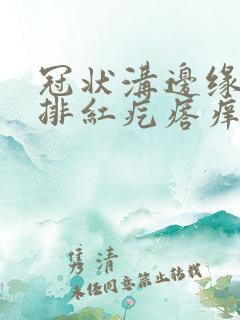 冠状溝邊缘
排紅疙瘩痒
隽清
未经同意禁止转载